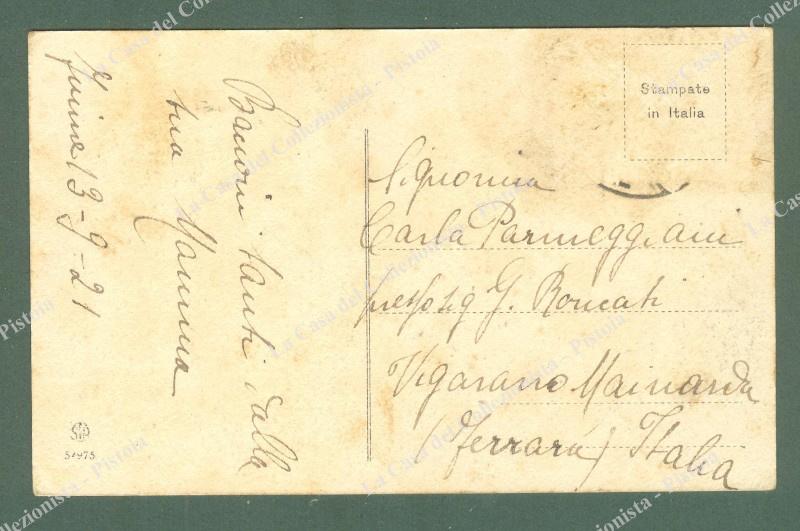 Fiume 13-9-21
Bacioni tanti dalla
tua Mamma
Stampate
in Italia
Signorina
Carla Parmeggiani
presso sig G. Roncati
Vigarano Mainarda
(Ferrara) Italia
52975
La Casa del Collezionista - Pistoia